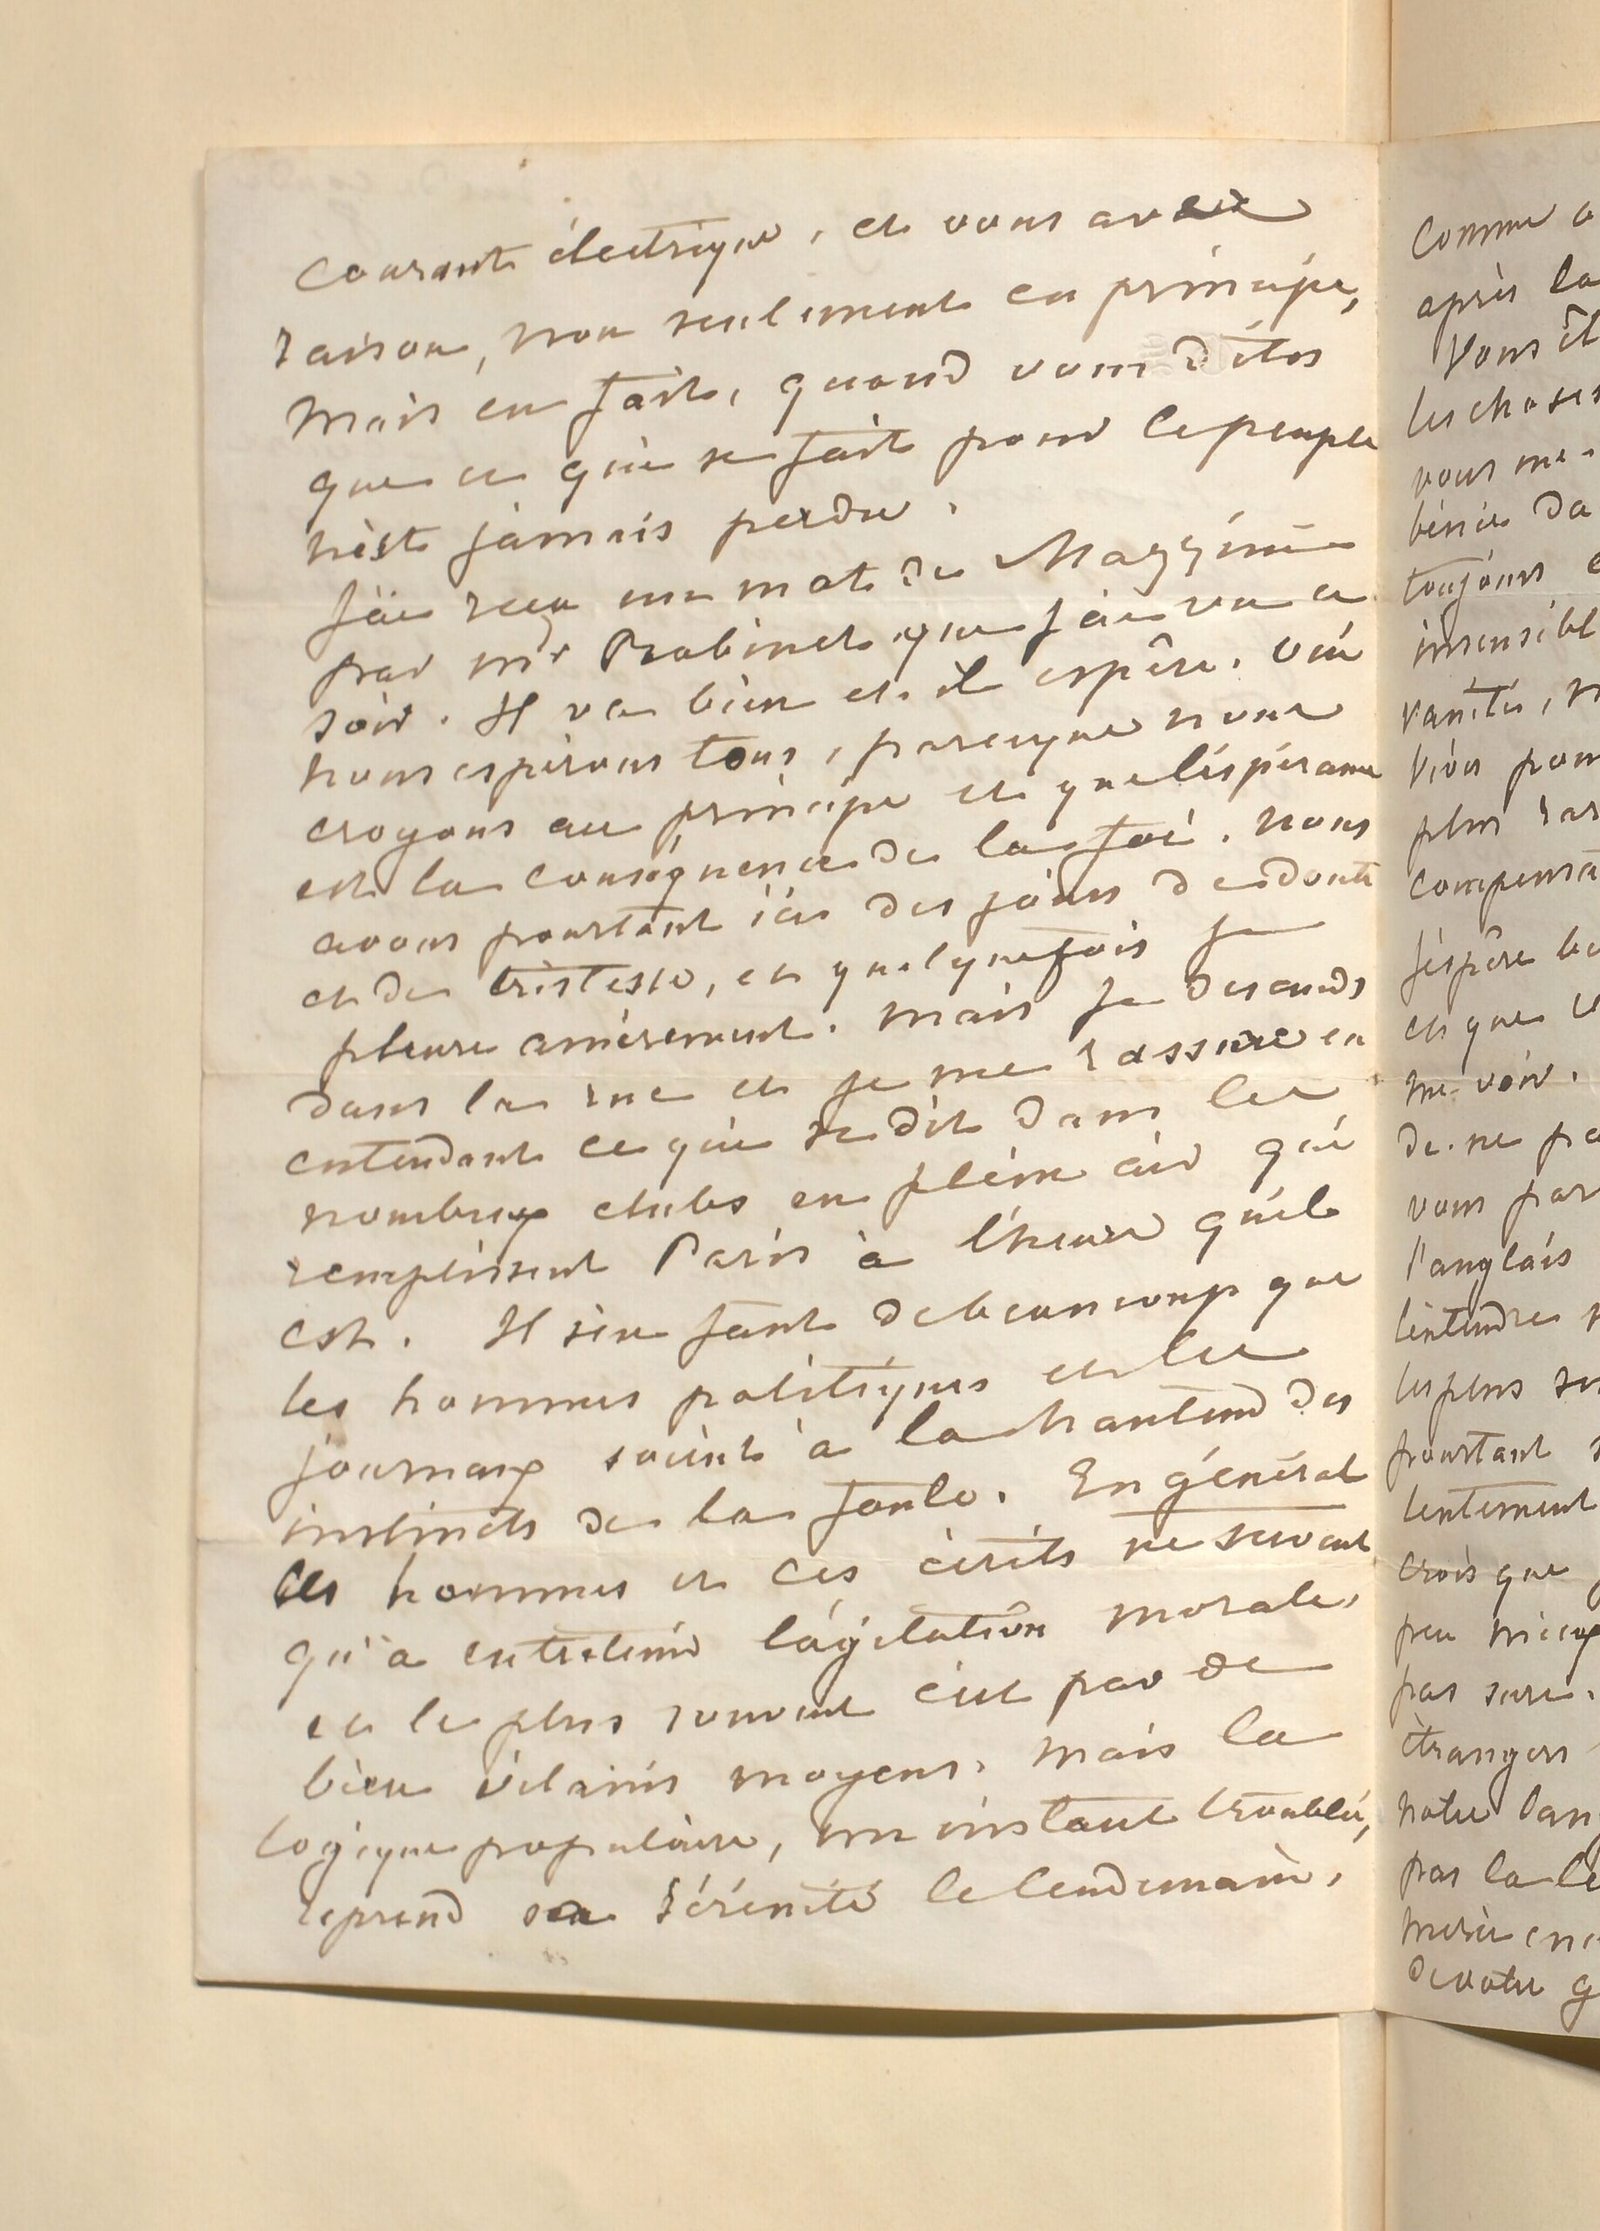 courant électrique, et vous avez
raison, non seulement en principe,
mais en fait, quand vous dites
que ce qui se fait pour le peuple
n'est jamais perdu.
J'ai reçu un mot de Mazzini
par Mr que j'ai vu ce
soir. Il va bien et il espère. Oui
nous espérons tous, parceque nous
croyons au principe et que l'espérance
est la conséquence de la foi. Nous
avons pourtant ici des jours de doute
et de tristesse, et quelquefois je
pleure amèrement. Mais je descends
dans la rue et je me rassure en
entendant ce qui se dit dans les
nombreux clubs en plein air qui
remplissent Paris à l'heure qu'il
est. Il s'en faut de beaucoup que
les hommes politiques et les
journaux soient à la hauteur des
instincts de la foule. En général
ces hommes et ces écrits ne servent
qu'à entretenir l'agitation morale,
et le plus souvent c'est par de
bien vilains moyens. Mais la
logique populaire, un instant troublée,
reprend sa sérénité le lendemain.
comme
après la
Vous êt
les choses
vous me
bénie da
toujours
insensibl
vanité,
Vivez pour
plus rar
compensa
J'espère
et que
me voir.
de ne pa
vous par
l'anglais
l'entendre
les plus
pourtant
lentement
crois que
peu mieux
pas sure.
étrangers
notre lan
pas la le
de votre g